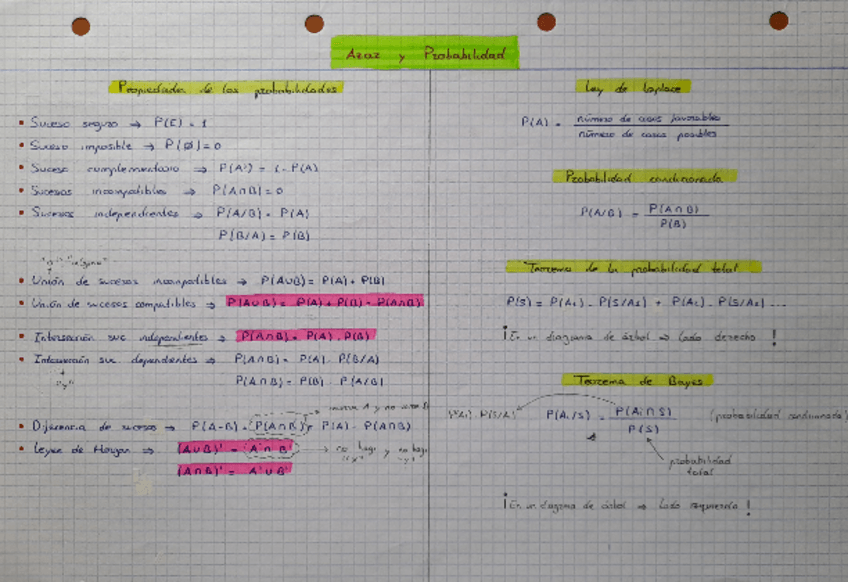 Azar y Probabilidad
Propiedades de las probabilidades
• Suceso seguro → P(E) = 1
• Suceso imposible → P(Ø) = 0
• Suceso complementario → P(A') = 1 - P(A)
• Sucesos incompatibles → P(A∩B) = 0
• Sucesos independientes → P(A/B) = P(A)
P(B/A) = P(B)
"o" "alguno"
• Unión de sucesos incompatibles → P(A∪B) = P(A) + P(B)
• Unión de sucesos compatibles → P(A∪B) = P(A) + P(B) - P(A∩B)
• Intersección suc independientes → P(A∩B) = P(A) · P(B)
• Intersección suc. dependientes → P(A∩B) = P(A) · P(B/A)
"y"
P(A∩B) = P(B) · P(A/B)
ocurre A y no ocurre B
• Diferencia de sucesos → P(A-B) = P(A∩B') = P(A) - P(A∩B)
• Leyes de Morgan → (A∪B)' = A'∩B' → no haga y no haga
"y"
(A∩B)' = A'∪B'
Ley de Laplace
P(A) = número de casos favorables
número de casos posibles
Probabilidad condicionada
P(A/B) = P(A∩B)
P(B)
Teorema de la probabilidad total
P(S) = P(A₁) · P(S/A₁) + P(A₂) · P(S/A₂) ...
¡En un diagrama de árbol → lado derecho!
Teorema de Bayes
P(Ai) · P(S/Ai)
P(Ai/S) = P(Ai∩S) (probabilidad condicionada)
P(S)
probabilidad
total
¡En un diagrama de árbol → lado izquierdo!